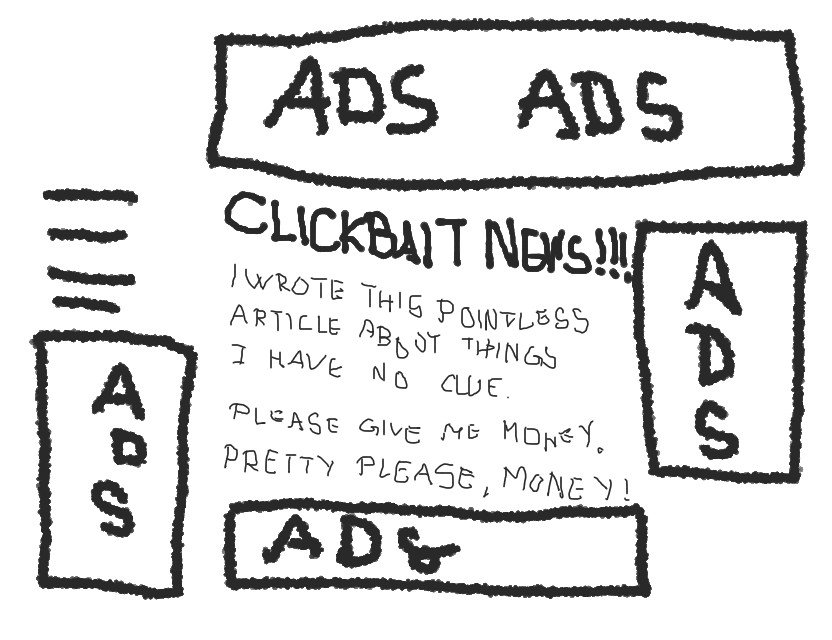 ADS ADS
CLICKBAIT NEWS!!!
I WROTE THIS POINTLESS
ARTICLE ABOUT THINGS
I HAVE NO CLUE.
PLEASE GIVE ME MONEY.
PRETTY PLEASE, MONEY!
ADS
ADS
ADS